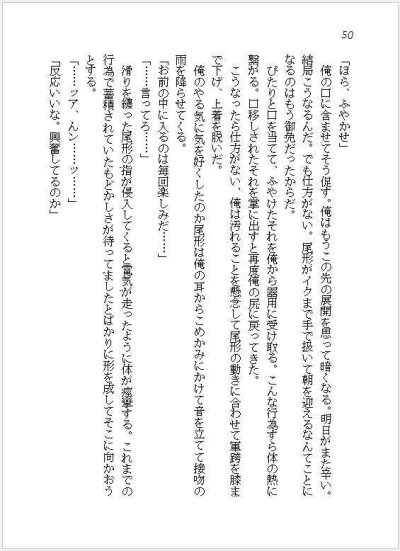 50
「ほら、ふやかせ」
　俺の口に含ませてそう促す。俺はもうこの先の展開を思って暗くなる。明日がまた辛い。
結局こうなるんだ。でも仕方がない。尾形がイクまで手で扱いて朝を迎えるなんてことに
なるのはもう御免だったからだ。
　ぴたりと口を当てて、ふやけたそれを俺から器用に受け取る。こんな行為すら体の熱に
繋がる。口移しされたそれを掌に出すと再度俺の尻に戻ってきた。
　こうなったら仕方がない、俺は汚れることを懸念して尾形の動きに合わせて軍跨を膝ま
で下げ、上着を脱いだ。
　俺のやる気に気を好くしたのか尾形は俺の耳からこめかみにかけて音を立てて接吻の
雨を降らせてくる。
「お前の中に入るのは毎回楽しみだ……」
「……言ってろ……」
　滑りを纏った尾形の指が侵入してくると電気が走ったように体が痙攣する。これまでの
行為で蓄積されていたもどかしさが待ってましたとばかりに形を成してそこに向かおう
とする。
「……ッア、んン……ッ……」
「反応いいな。興奮してるのか」